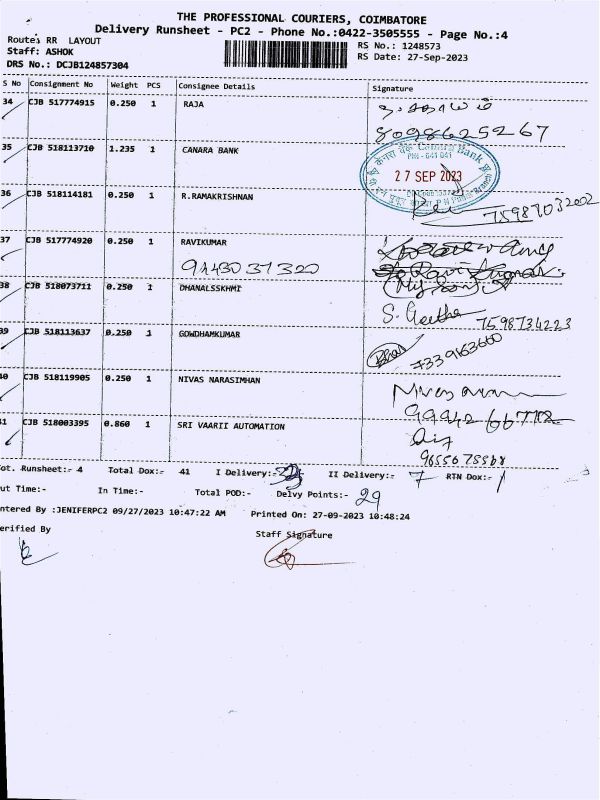 THE PROFESSIONAL COURIERS, COIMBATORE
Delivery Runsheet - PC2 - Phone No.:0422-3505555 - Page No.:4
Route: RR LAYOUT
RS No.: 1248573
Staff: ASHOK
RS Date: 27-Sep-2023
DRS No.: DCJB124857304
S No Consignment No Weight PCS Consignee Details Signature
34 CJB 517774915 0.250 1 RAJA
8098625267
35 CJB 518113710 1.235 1 CANARA BANK
केनरा बैंक Canara Bank
PIN - 641 041
27 SEP 2023
36 CJB 518114181 0.250 1 R.RAMAKRISHNAN
75987032002
37 CJB 517774920 0.250 1 RAVIKUMAR
9443037320
38 CJB 518073711 0.250 1 DHANALSSKHMI
S. Geetha 7598734223
39 CJB 518113637 0.250 1 GOWDHAMKUMAR
40 CJB 518119905 0.250 1 NIVAS NARASIMHAN
41 CJB 518003395 0.860 1 SRI VAARII AUTOMATION
9655675568
ot. Runsheet:- 4 Total Dox:- 41 I Delivery:- II Delivery:- 7 RTN Dox:- 1
ut Time:- In Time:- Total POD:- Delvy Points:- 29
ntered By :JENIFERPC2 09/27/2023 10:47:22 AM Printed On: 27-09-2023 10:48:24
erified By
Staff Signature